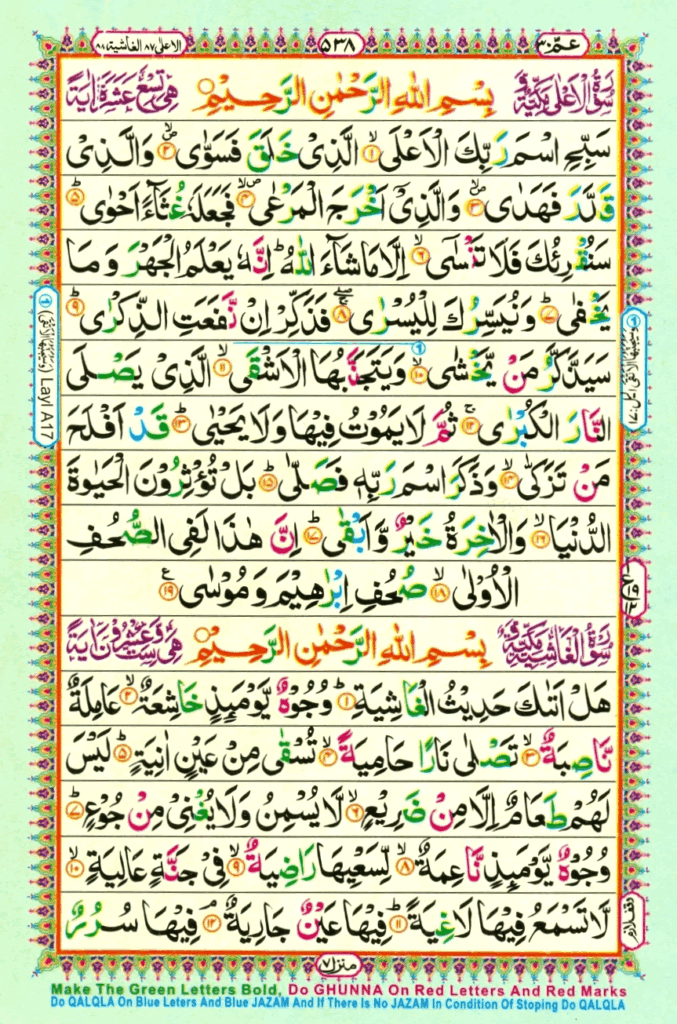 الاعلى ٨٧ الغاشية ٨٨
٥٣٨
عمّ ٣٠
سُوْرَةُ الْاَعْلٰى مَكِّيَّةٌ وَّ
بِسْمِ اللّٰهِ الرَّحْمٰنِ الرَّحِيْمِ
هِيَ تِسْعَ عَشَرَةَ اٰيَةً
سَبِّحِ اسْمَ رَبِّكَ الْاَعْلَى ۙ‏﴿۱﴾ الَّذِىْ خَلَقَ فَسَوّٰى ۪ۙ‏﴿۲﴾ وَالَّذِىْ
قَدَّرَ فَهَدٰى ۪ۙ‏﴿۳﴾ وَالَّذِىْۤ اَخْرَجَ الْمَرْعٰى ۪ۙ‏﴿۴﴾ فَجَعَلَهٗ غُثَآءً اَحْوٰىؕ‏﴿۵﴾
سَنُقْرِئُكَ فَلَا تَنْسٰٓى ۙ‏﴿۶﴾ اِلَّا مَا شَآءَ اللّٰهُ‌ؕ اِنَّهٗ يَعْلَمُ الْجَهْرَ وَمَا
يَخْفٰىؕ‏﴿۷﴾ وَنُيَسِّرُكَ لِلْيُسْرٰى ۖۚ‏﴿۸﴾ فَذَكِّرْ اِنْ نَّفَعَتِ الذِّكْرٰىؕ‏﴿۹﴾
سَيَذَّكَّرُ مَنْ يَّخْشٰى ۙ‏﴿۱۰﴾ وَيَتَجَنَّبُهَا الْاَشْقَى ۙ‏﴿۱۱﴾ الَّذِىْ يَصْلَى
النَّارَ الْكُبْرٰى‌ۚ‏﴿۱۲﴾ ثُمَّ لَا يَمُوْتُ فِيْهَا وَلَا يَحْيٰىؕ‏﴿۱۳﴾ قَدْ اَفْلَحَ
مَنْ تَزَكّٰى ۙ‏﴿۱۴﴾ وَذَكَرَ اسْمَ رَبِّهٖ فَصَلّٰى‌ؕ‏﴿۱۵﴾ بَلْ تُؤْثِرُوْنَ الْحَيٰوةَ
الدُّنْيَا ۙ‏﴿۱۶﴾ وَالْاٰخِرَةُ خَيْرٌ وَّاَبْقٰىؕ‏﴿۱۷﴾ اِنَّ هٰذَا لَفِى الصُّحُفِ
الْاُوْلٰى ۙ‏﴿۱۸﴾ صُحُفِ اِبْرٰهِيْمَ وَمُوْسٰى‏﴿۱۹﴾
سُوْرَةُ الْغَاشِيَةِ مَكِّيَّةٌ وَّ
بِسْمِ اللّٰهِ الرَّحْمٰنِ الرَّحِيْمِ
هِيَ سِتٌّ وَّعِشْرُوْنَ اٰيَةً
هَلْ اَتٰٮكَ حَدِيْثُ الْغَاشِيَةِؕ‏﴿۱﴾ وُجُوْهٌ يَّوْمَٮِٕذٍ خَاشِعَةٌ ۙ‏﴿۲﴾ عَامِلَةٌ
نَّاصِبَةٌ ۙ‏﴿۳﴾ تَصْلٰى نَارًا حَامِيَةً ۙ‏﴿۴﴾ تُسْقٰى مِنْ عَيْنٍ اٰنِيَةٍؕ‏﴿۵﴾ لَيْسَ
لَهُمْ طَعَامٌ اِلَّا مِنْ ضَرِيْعٍۙ‏﴿۶﴾ لَّا يُسْمِنُ وَلَا يُغْنِىْ مِنْ جُوْعٍؕ‏﴿۷﴾
وُجُوْهٌ يَّوْمَٮِٕذٍ نَّاعِمَةٌ ۙ‏﴿۸﴾ لِّسَعْيِهَا رَاضِيَةٌ ۙ‏﴿۹﴾ فِىْ جَنَّةٍ عَالِيَةٍۙ‏﴿۱۰﴾
لَّا تَسْمَعُ فِيْهَا لَاغِيَةً ؕ‏﴿۱۱﴾ فِيْهَا عَيْنٌ جَارِيَةٌ‌ ۘ‏﴿۱۲﴾ فِيْهَا سُرُرٌ
منزل ٧
Layl A17
وقف لازم
Make The Green Letters Bold, Do GHUNNA On Red Letters And Red Marks
Do QALQLA On Blue Leters And Blue JAZAM And If There Is No JAZAM In Condition Of Stoping Do QALQLA